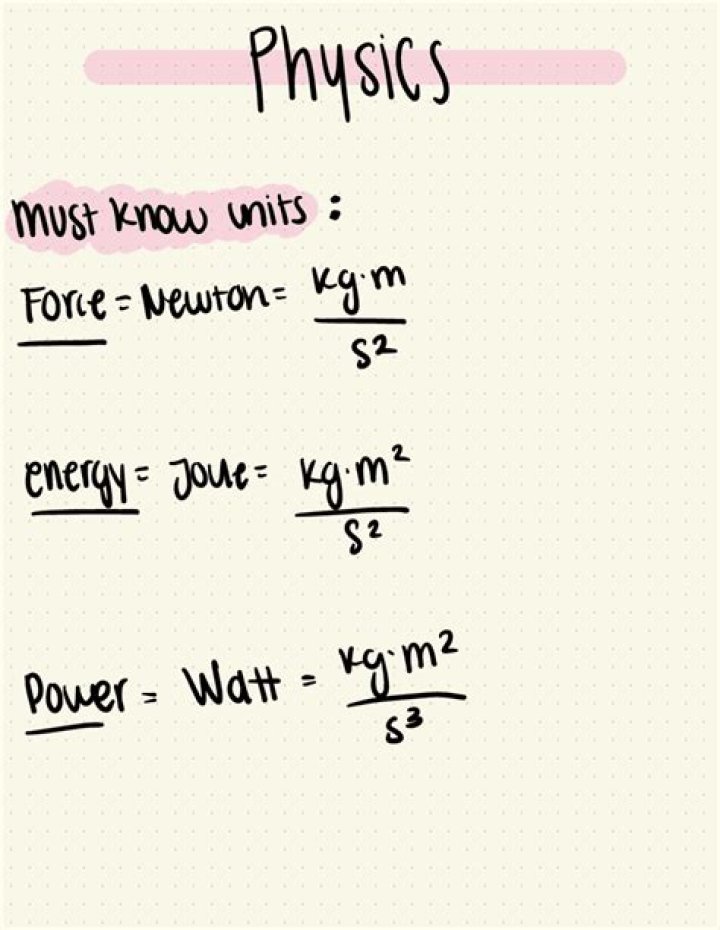 Physics
must know units :
Force = Newton = kg·m
s²
energy = Joule = kg·m²
s²
Power = Watt = kg·m²
s³